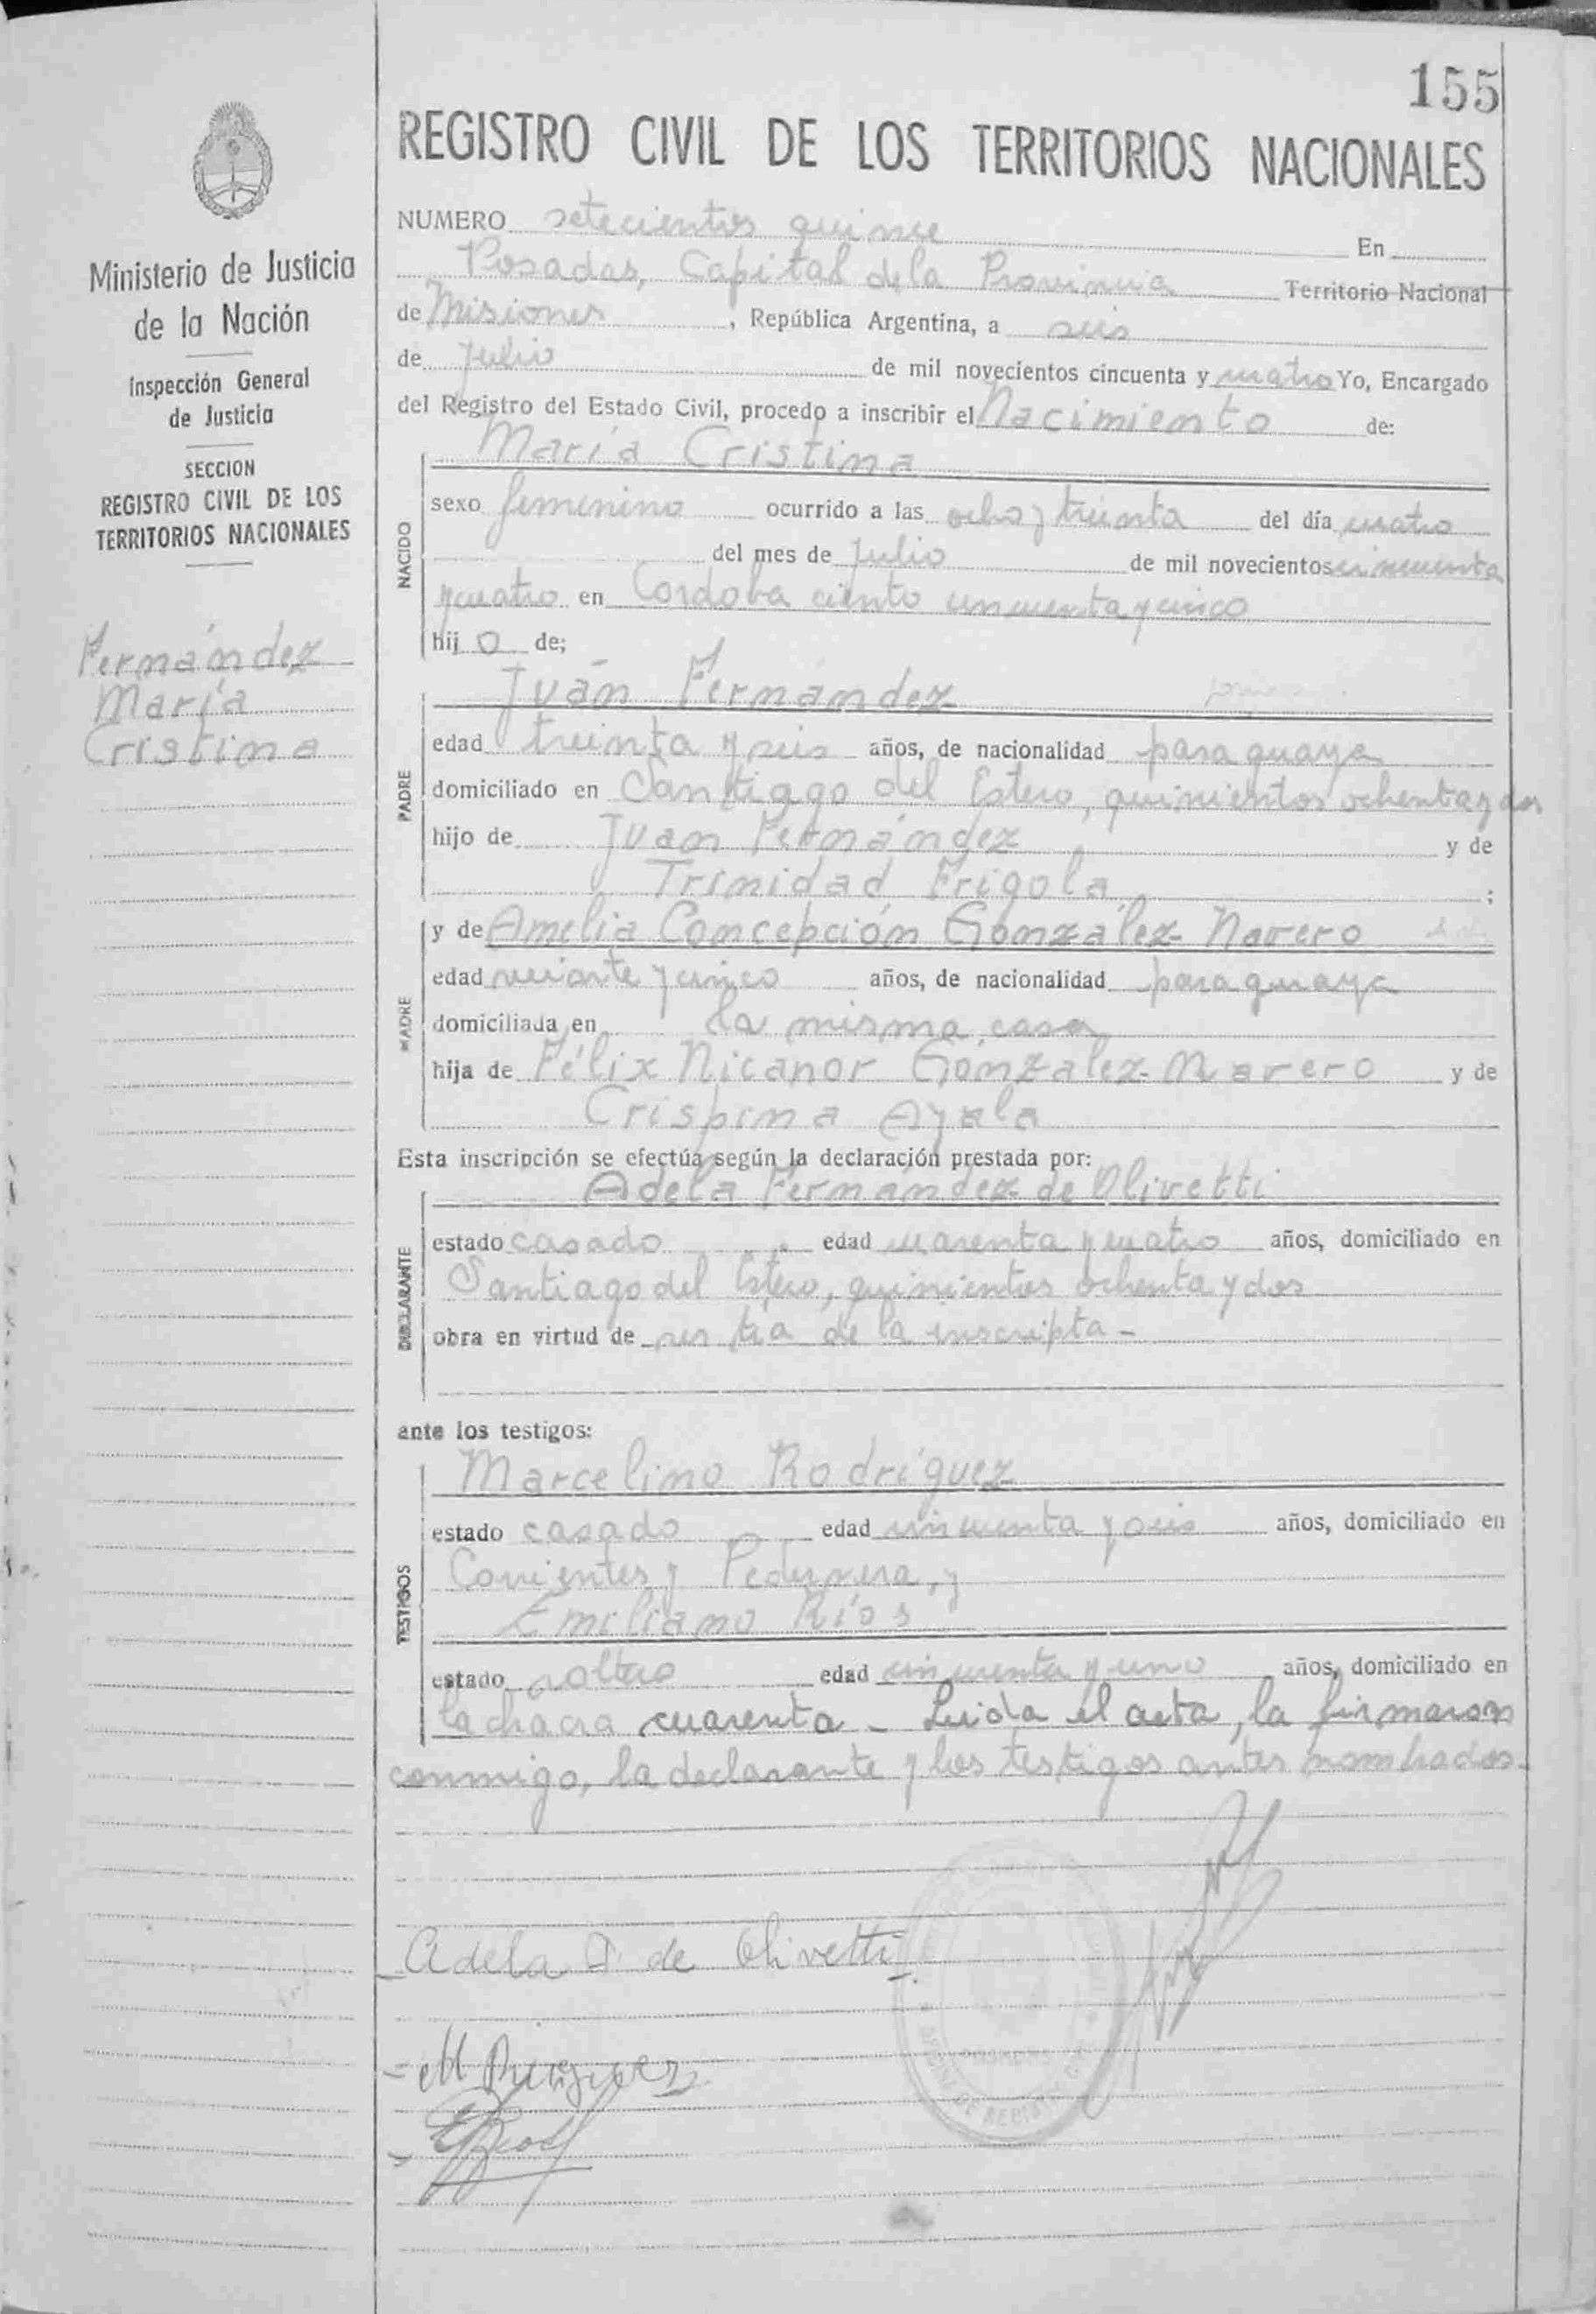 155
REGISTRO CIVIL DE LOS TERRITORIOS NACIONALES
Ministerio de Justicia
de la Nación
Inspección General
de Justicia
SECCION
REGISTRO CIVIL DE LOS
TERRITORIOS NACIONALES
Fernández
María
Cristina
NUMERO setecientos quince En
Posadas, Capital de la Provincia Territorio Nacional
de Misiones, República Argentina, a seis
de Julio de mil novecientos cincuenta y cuatro Yo, Encargado
del Registro del Estado Civil, procedo a inscribir el Nacimiento de:
María Cristina
NACIDO
sexo femenino ocurrido a las ocho y treinta del día cuatro
del mes de Julio de mil novecientos cincuenta
y cuatro en Cordoba ciento cincuenta y cinco
hij o de;
Juán Fernández
PADRE
edad treinta y seis años, de nacionalidad paraguaya
domiciliado en Santiago del Estero, quinientos ochenta y dos
hijo de Juan Fernández y de
Trinidad Frigola ;
y de Amelia Concepción González Navero
MADRE
edad veinte y cinco años, de nacionalidad paraguaya
domiciliada en la misma casa
hija de Félix Nicanor Gonzalez Navero y de
Crispina Ayala
Esta inscripción se efectúa según la declaración prestada por:
Adela Fernández de Olivetti
DECLARANTE
estado casado edad cuarenta y cuatro años, domiciliado en
Santiago del Estero, quinientos ochenta y dos
obra en virtud de ser tia de la inscripta -
ante los testigos:
Marcelino Rodríguez
TESTIGOS
estado casado edad cincuenta y seis años, domiciliado en
Corrientes y Pedernera, y
Emiliano Ríos
estado soltero edad cincuenta y uno años, domiciliado en
la chacra cuarenta - Leida el acta, la firmaron
conmigo, la declarante y los testigos antes nombrados.
Adela F. de Olivetti